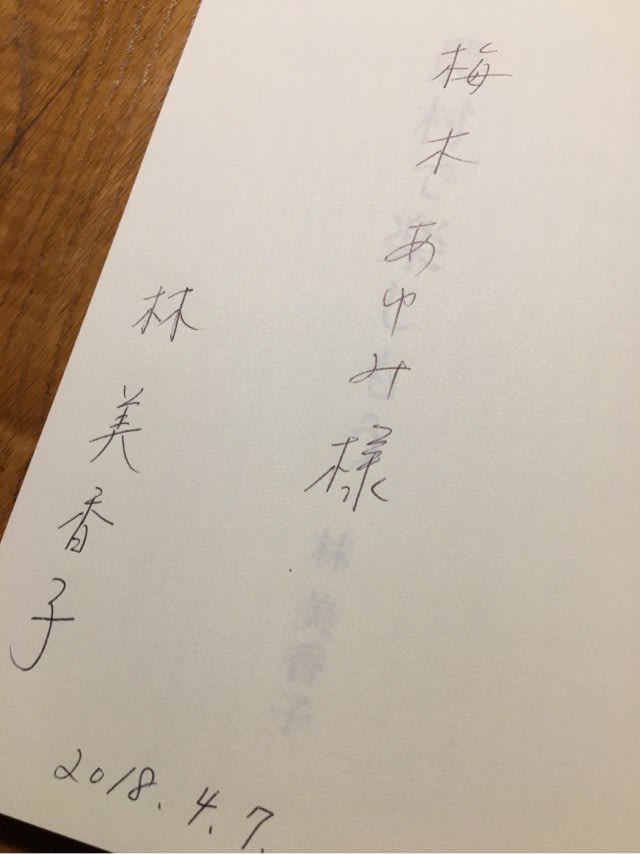 梅木あゆみ様
林美香子
2018.4.7.